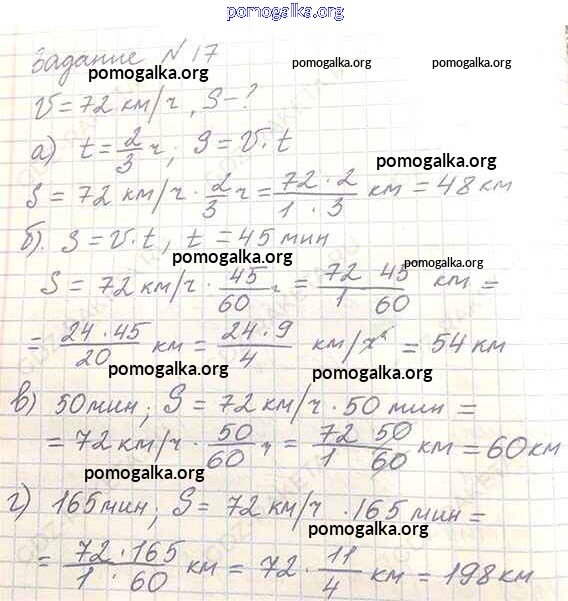 pomogalka.org
Задание №17
pomogalka.org pomogalka.org pomogalka.org
V = 72 км/ч, S - ?
а) t = 2/3 ч; S = V · t
pomogalka.org
S = 72 км/ч · 2/3 ч = 72 · 2 / 1 · 3 км = 48 км
б). S = V · t, t = 45 мин
pomogalka.org pomogalka.org
S = 72 км/ч · 45/60 ч = 72 45 / 1 60 км =
= 24 · 45 / 20 км = 24 · 9 / 4 км/ч = 54 км
pomogalka.org pomogalka.org
в) 50 мин; S = 72 км/ч · 50 мин =
= 72 км/ч · 50/60 ч = 72 50 / 1 60 км = 60 км
pomogalka.org
г) 165 мин; S = 72 км/ч · 165 мин =
pomogalka.org
= 72 · 165 / 1 · 60 км = 72 · 11/4 км = 198 км